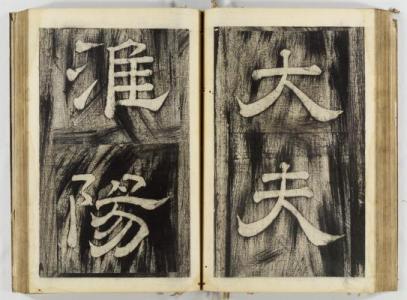 大夫
淮陽